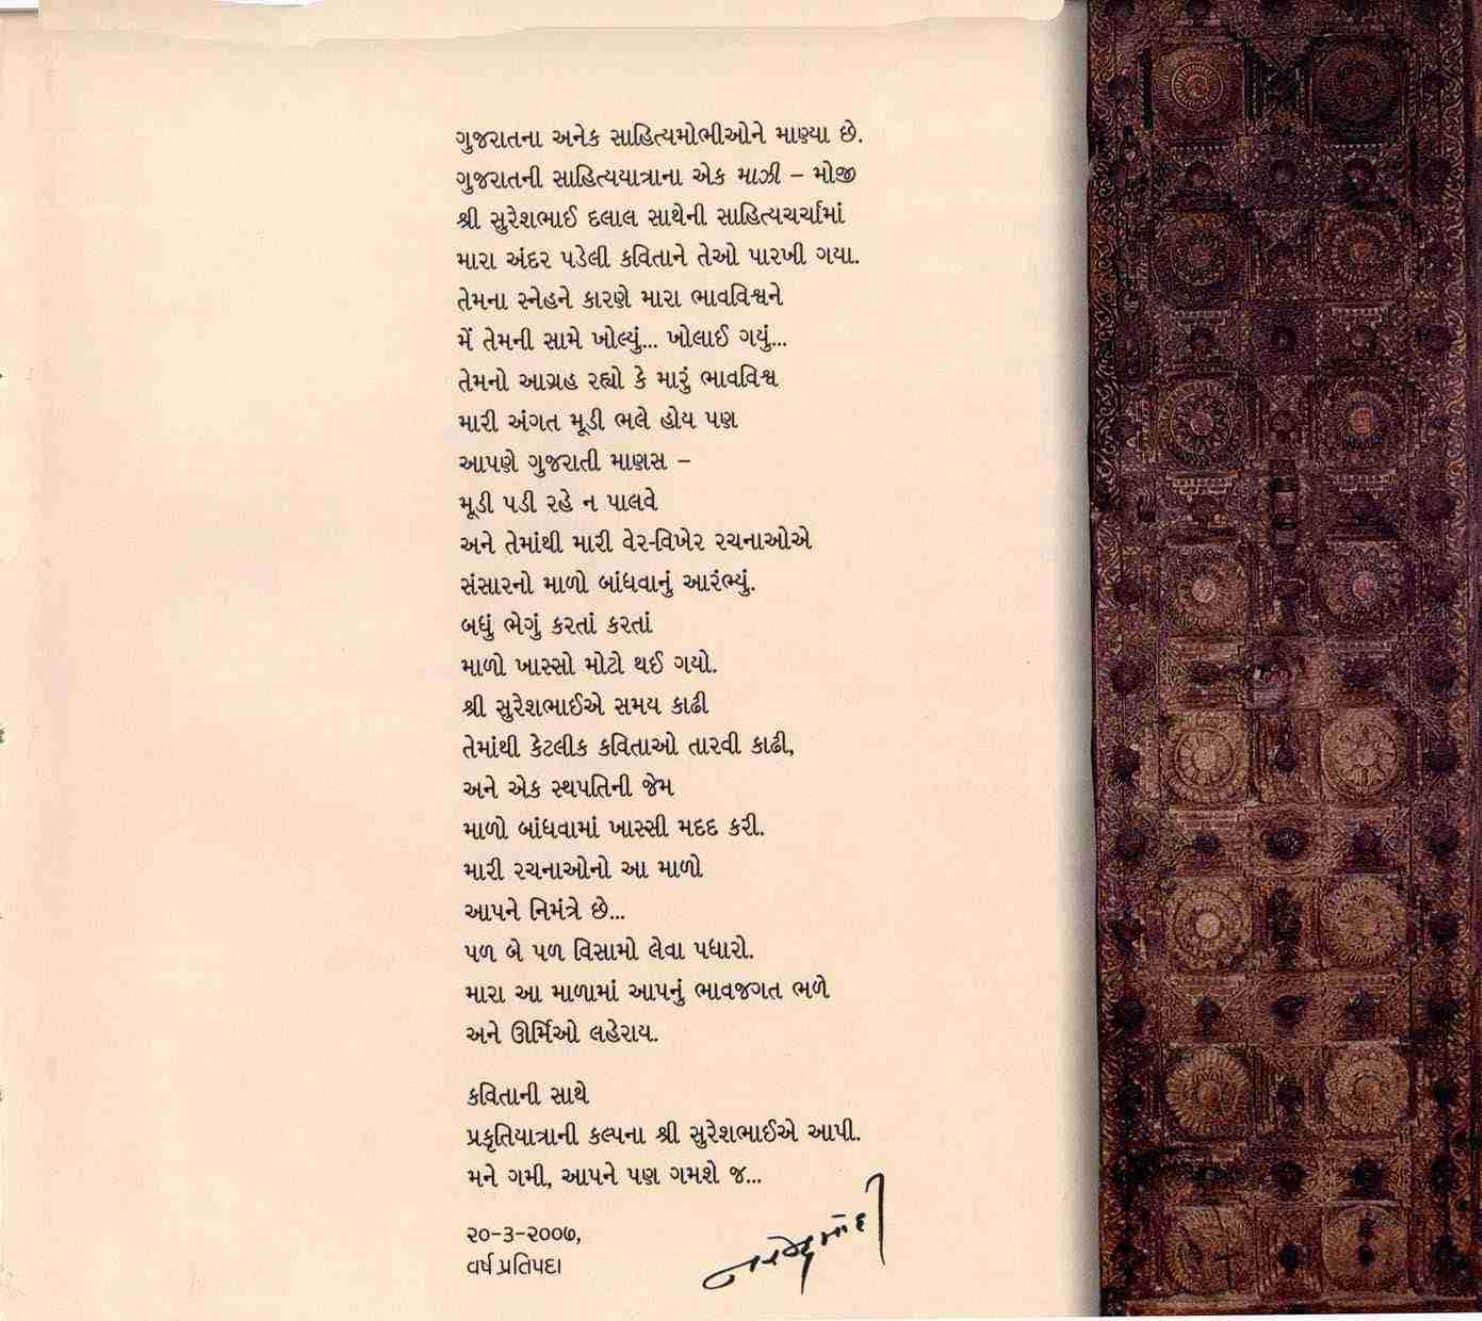 ગુજરાતના અનેક સાહિત્યમોભીઓને માણ્યા છે.
ગુજરાતની સાહિત્યયાત્રાના એક માઝી – મોજી
શ્રી સુરેશભાઈ દલાલ સાથેની સાહિત્યચર્ચામાં
મારા અંદર પડેલી કવિતાને તેઓ પારખી ગયા.
તેમના સ્નેહને કારણે મારા ભાવવિશ્વને
મેં તેમની સામે ખોલ્યું... ખોલાઈ ગયું...
તેમનો આગ્રહ રહ્યો કે મારું ભાવવિશ્વ
મારી અંગત મૂડી ભલે હોય પણ
આપણે ગુજરાતી માણસ –
મૂડી પડી રહે ન પાલવે
અને તેમાંથી મારી વેર-વિખેર રચનાઓએ
સંસારનો માળો બાંધવાનું આરંભ્યું.
બધું ભેગું કરતાં કરતાં
માળો ખાસ્સો મોટો થઈ ગયો.
શ્રી સુરેશભાઈએ સમય કાઢી
તેમાંથી કેટલીક કવિતાઓ તારવી કાઢી,
અને એક સ્થપતિની જેમ
માળો બાંધવામાં ખાસ્સી મદદ કરી.
મારી રચનાઓનો આ માળો
આપને નિમંત્રે છે...
પળ બે પળ વિસામો લેવા પધારો.
મારા આ માળામાં આપનું ભાવજગત ભળે
અને ઊર્મિઓ લહેરાય.
કવિતાની સાથે
પ્રકૃતિયાત્રાની કલ્પના શ્રી સુરેશભાઈએ આપી.
મને ગમી, આપને પણ ગમશે જ...
૨૦-૩-૨૦૦૭,
વર્ષ પ્રતિપદા